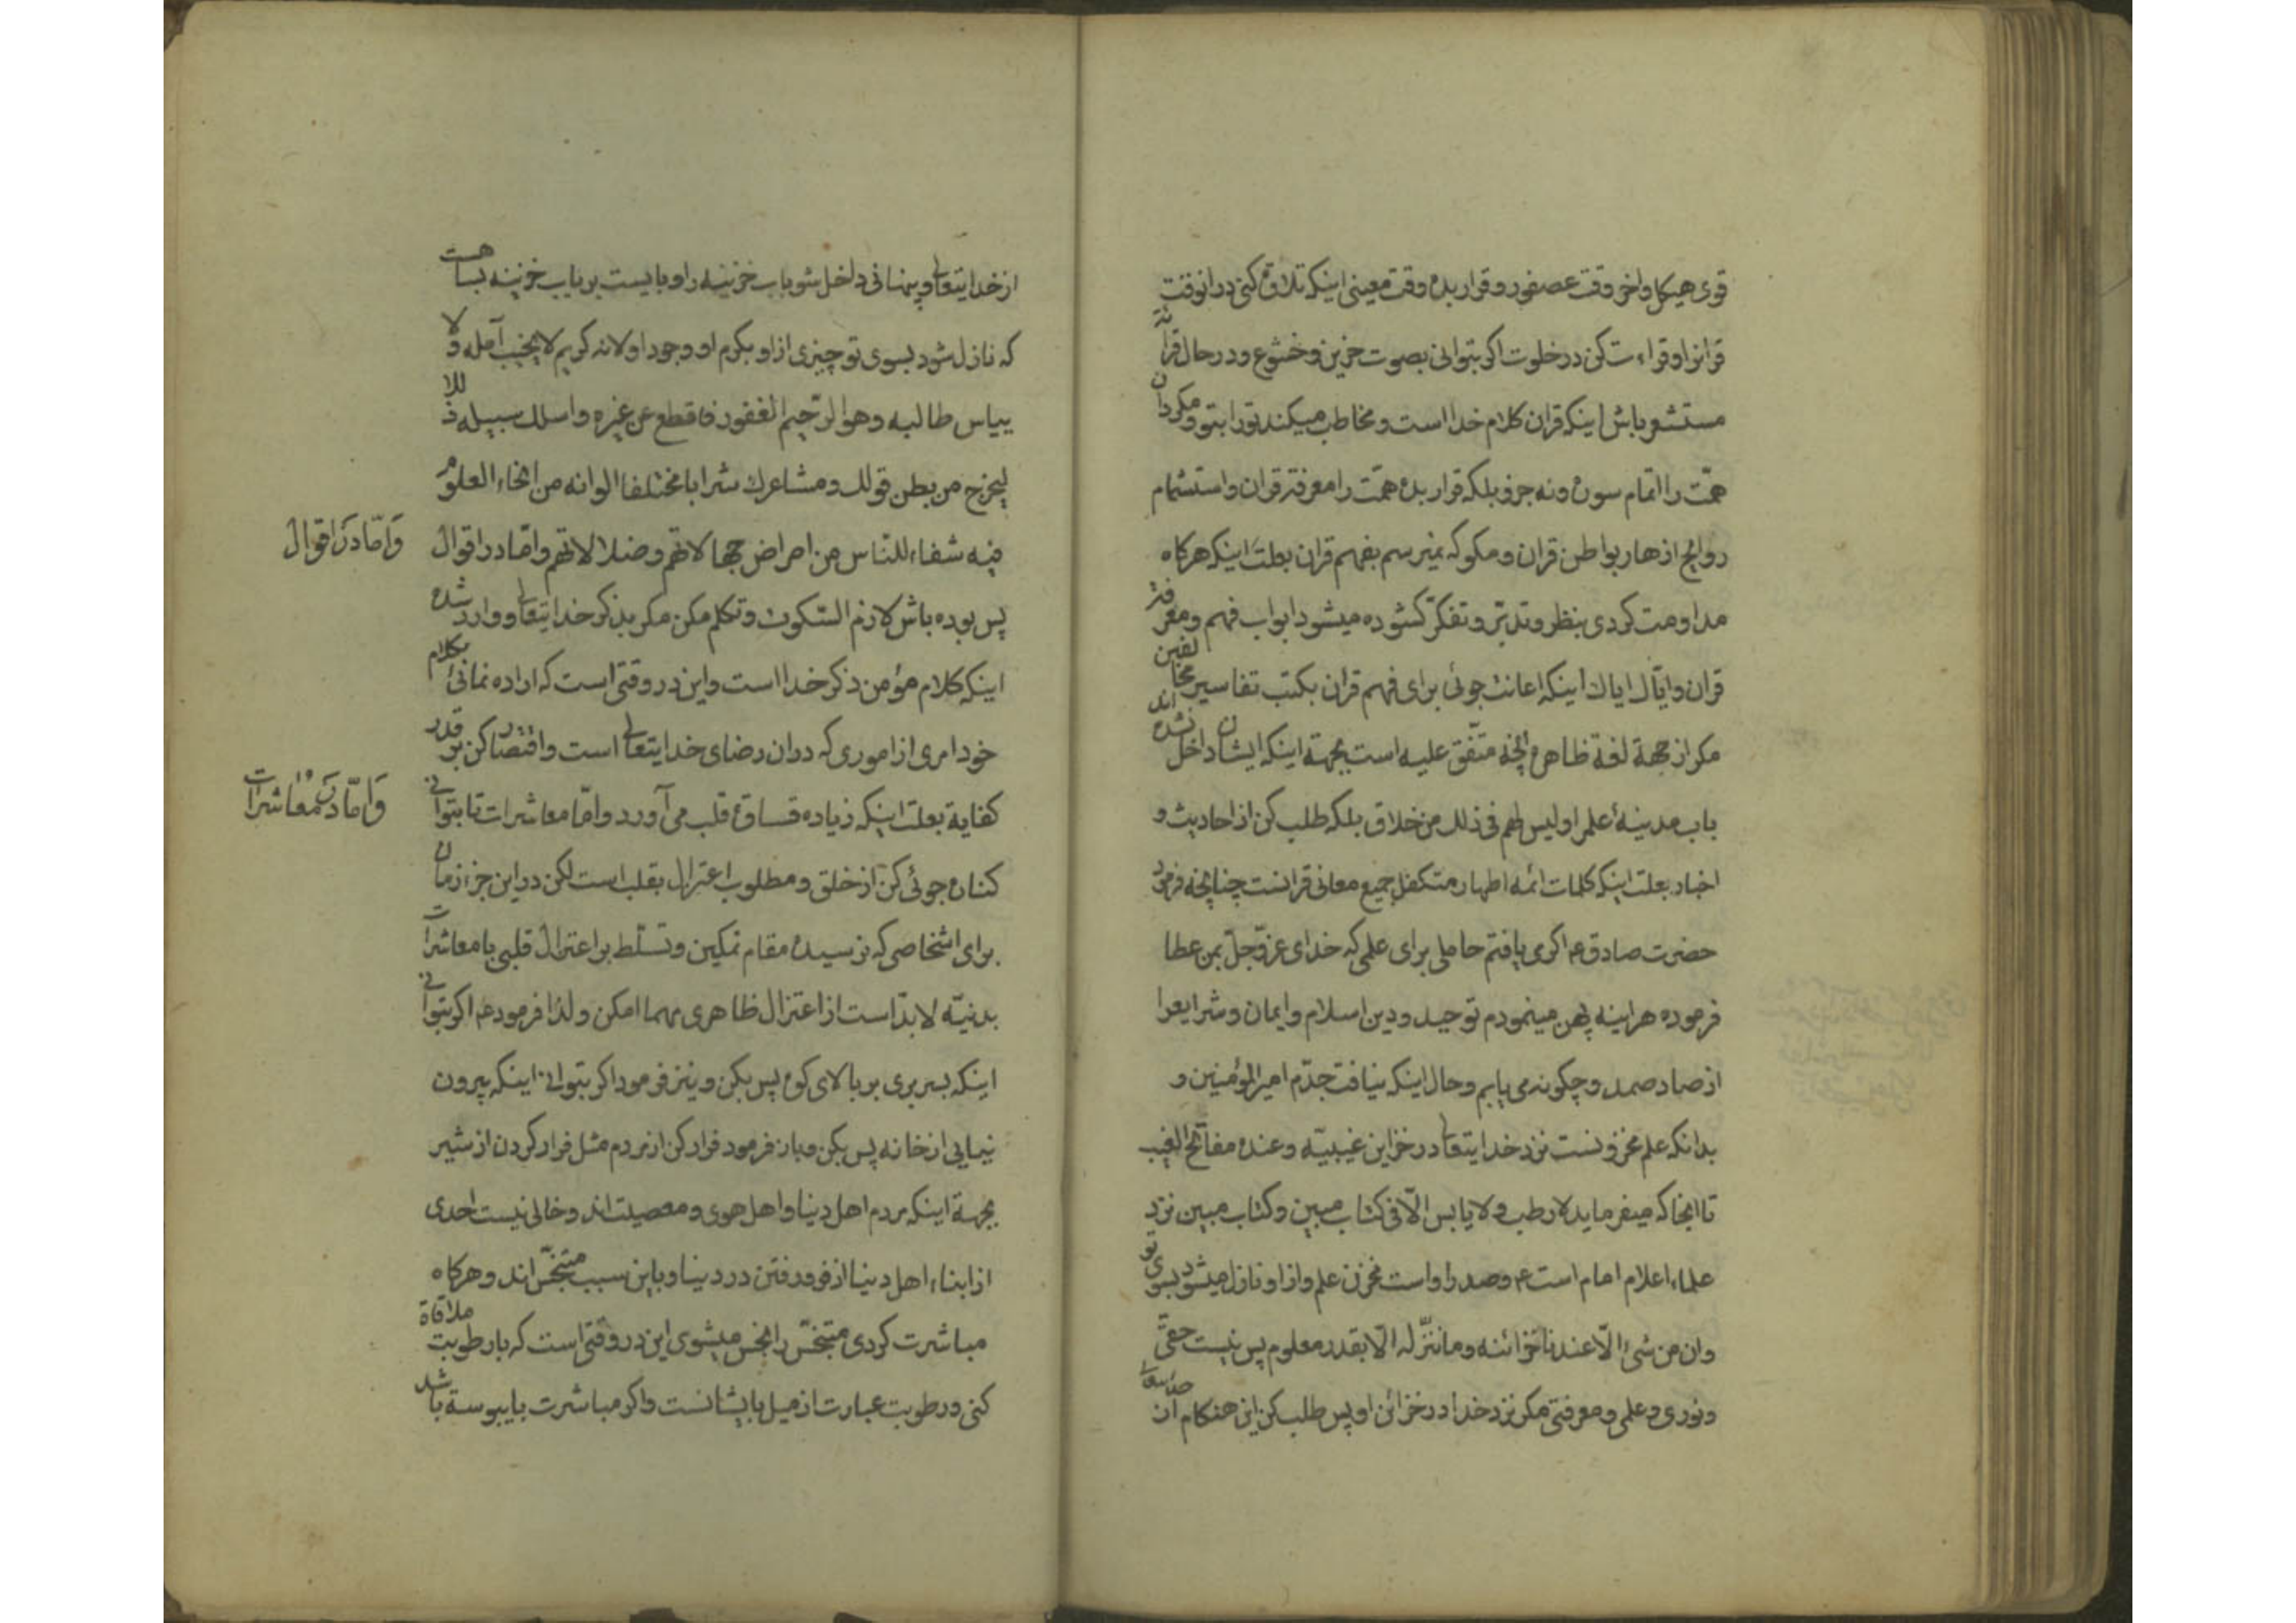 قوی هیکل و اخر وقت عصفور و قرار بده وقت معینی اینکه تلاوة کنی در انوقت
قرانرا و قراءت کن در خلوت اکر بتوانی بصوت حزین و خشوع و در حال قرائة
مستشعر باش اینکه قران کلام خدا است و مخاطب میکند تو را بتو و مکردان
همّت را اتمام سوره و نه جزو بلکه قرار بده همّت را معرفة قران و استشمام
روایح ازهار بواطن قران و مکو که نمیرسم بفهم قران بعلت اینکه هرکاه
مداومت کردی بنظر و تدبّر و تفکّر کشوده میشود ابواب فهم و معرفة
قران و ایّاك ایاك اینکه اعانت جوئی برای فهم قران بکتب تفاسیر مخالفین
مکر از جهة لغة ظاهره انچه متّفق علیه است بجهة اینکه ایشان داخل نشده اند
باب مدینهٔ علمرا و لیس لهم فی ذلك من خلاق بلکه طلب کن از احادیث و
اخبار بعلت اینکه کلمات ائمه اطهار متکفل جمیع معانی قرانست چنانچه فرمود
حضرت صادق ع اکر می یافتم حاملی برای علمی که خدای عزّ و جلّ بمن عطا
فرموده هراینه پهن مینمودم توحید و دین اسلام و ایمان و شرایعرا
از صاد صمد و چکونه می یابم و حال اینکه نیافت جدّم امیر المؤمنین و
بدانکه علم مخزونست نزد خدایتعالی در خزاین غیبیّه و عنده مفاتح الغیب
تا انجا که میفرماید لا رطب و لا یابس الّا فی کتاب مبین و کتاب مبین نزد
علماء اعلام امام است ع و صدر او است مخزن علم و از او نازل میشود بسوی تو
و ان من شیء الّا عندنا خزائنه و ما ننزّله الّا بقدر معلوم پس نیست حقی
و نوری و علمی و معرفتی مکر نزد خدا در خزائن او پس طلب کن این هنکام ان
از خدایتعالی و پنهانی داخل شو باب خزینه را و بایست بر باب خزینه بسا هست
که نازل شود بسوی تو چیزی از او بکرم او وجود او لانه کریم لا یخیب آمله و لا
ییاس طالبه و هو الرّحیم الغفور فاقطع عن غیره و اسلك سبیله ذللا
لیخرج من بطن قولك و مشاعرك شرابا مختلفا الوانه من انحاء العلوم
فیه شفاء للنّاس من امراض جهالاتهم و ضلالاتهم و امّا در اقوال
وَامّا دَر اقوال
پس بوده باش لازم السّکوت و تکلم مکن مکر بذکر خدایتعالی و وارد شده
اینکه کلام مؤمن ذکر خدا است و این در وقتی است که اراده نمائی بکلام
خود امری از اموری که دران رضای خدایتعالی است و اقتصار کن بر قدر
کفایة بعلت اینکه زیاده قساوة قلب می آورد و امّا معاشرات تا بتوانی
وَ امّا دَر مُعاشرات
کناره جوئی کن از خلق و مطلوب اعتزال بقلب است لکن در این جزء زمان
برای اشخاصی که نرسیده مقام تمکین و تسلّط بر اعتزال قلبی با معاشرات
بدنیّه لابدّ است از اعتزال ظاهری مهما امکن و لذا فرمود ع اکر بتوانی
اینکه بسر بری بر بالای کوه پس بکن و نیز فرمود اکر بتوانی اینکه بیرون
نیایی از خانه پس بکن و باز فرمود فرار کن از مردم مثل فرار کردن از شیر
بجهة اینکه مردم اهل دنیا و اهل هوی و معصیت اند و خالی نیست احدی
از ابناء اهل دنیا از فرو رفتن در دنیا و باین سبب متنجّس اند و هرکاه
مباشرت کردی متنجّس را نجس میشوی این در وقتی است که با رطوبت ملاقاة
کنی و رطوبت عبارت از میل بایشانست و اکر مباشرت با یبوسة باشد